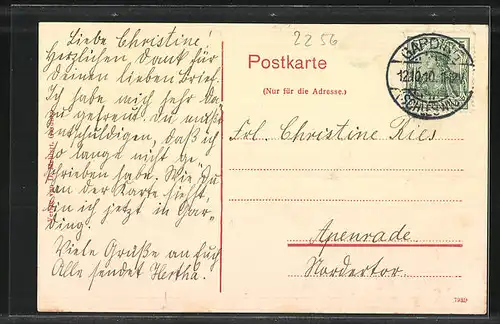 2256
Liebe Christine!
Herzlichen Dank für
Deinen lieben Brief.
Ich habe mich sehr da-
zu gefreut. Du mußt
entschuldigen, daß ich
so lange nicht ge-
schrieben habe. Wie Du
an der Karte siehst,
bin ich jetzt in Gar-
ding.
Viele Grüße an Euch
Alle sendet Hertha.
Postkarte
(Nur für die Adresse.)
GARDING
12.10.10.
(SCHLESWIG)
Frl. Christine Ries
Apenrade
Nordertor.